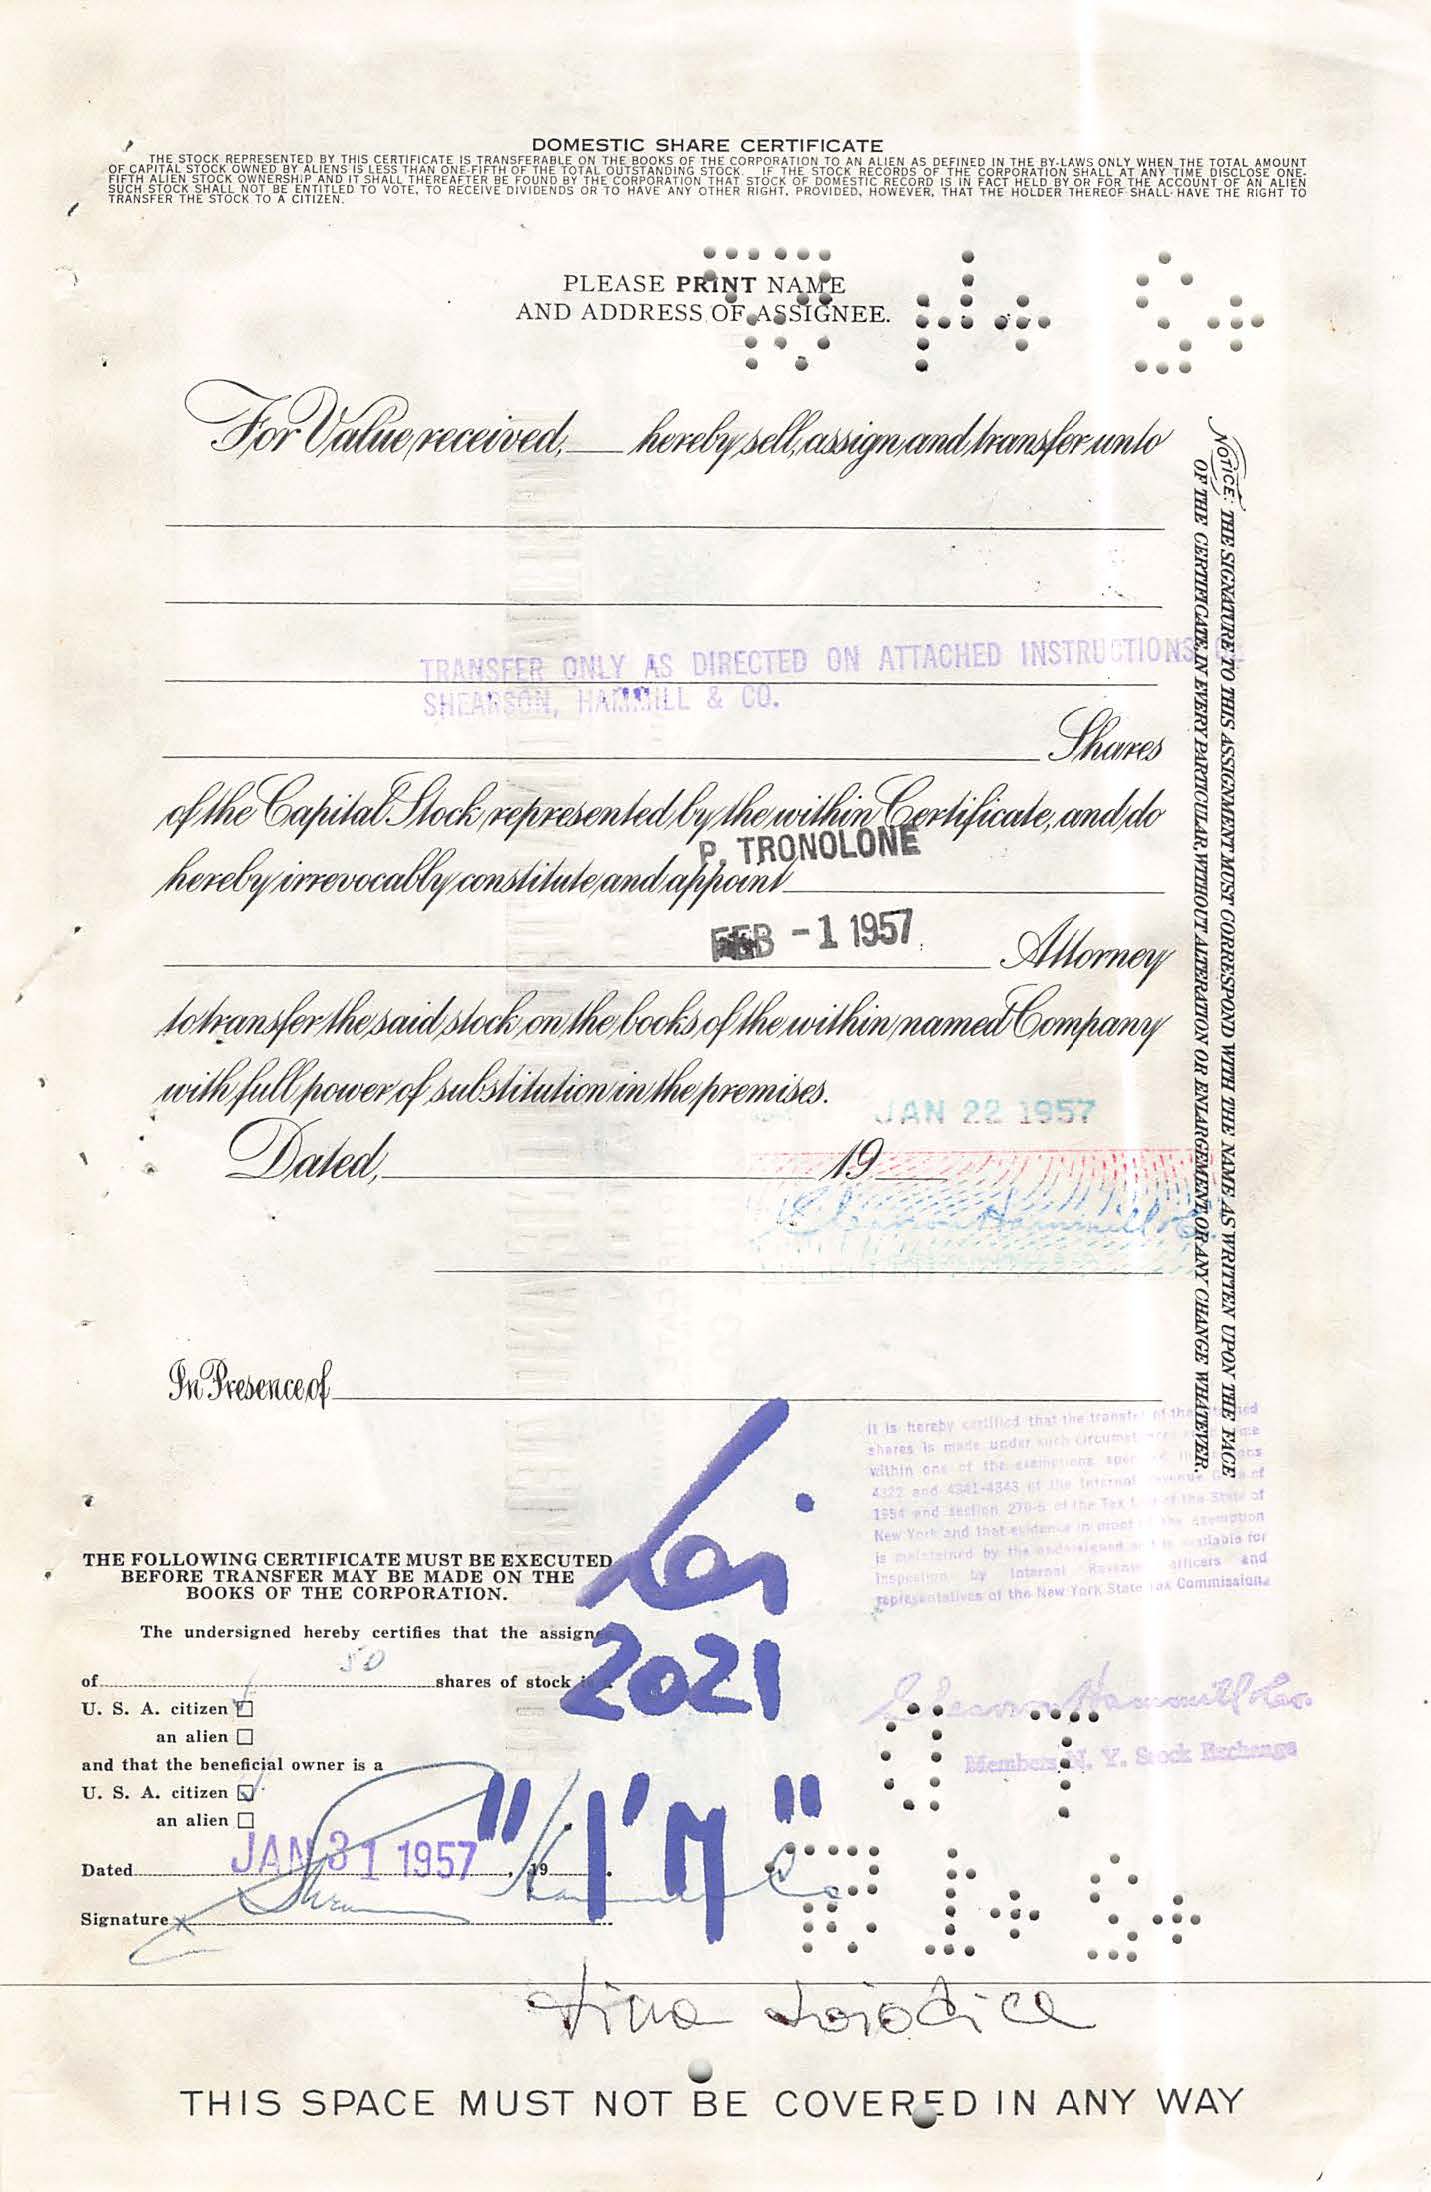 DOMESTIC SHARE CERTIFICATE
THE STOCK REPRESENTED BY THIS CERTIFICATE IS TRANSFERABLE ON THE BOOKS OF THE CORPORATION TO AN ALIEN AS DEFINED IN THE BY-LAWS ONLY WHEN THE TOTAL AMOUNT
OF CAPITAL STOCK OWNED BY ALIENS IS LESS THAN ONE-FIFTH OF THE TOTAL OUTSTANDING STOCK. IF THE STOCK RECORDS OF THE CORPORATION SHALL AT ANY TIME DISCLOSE ONE-
FIFTH ALIEN STOCK OWNERSHIP AND IT SHALL THEREAFTER BE FOUND BY THE CORPORATION THAT STOCK OF DOMESTIC RECORD IS IN FACT HELD BY OR FOR THE ACCOUNT OF AN ALIEN
SUCH STOCK SHALL NOT BE ENTITLED TO VOTE, TO RECEIVE DIVIDENDS OR TO HAVE ANY OTHER RIGHT, PROVIDED, HOWEVER, THAT THE HOLDER THEREOF SHALL HAVE THE RIGHT TO
TRANSFER THE STOCK TO A CITIZEN.
PLEASE PRINT NAME
AND ADDRESS OF ASSIGNEE.
For Value received, hereby sell, assign and transfer unto
TRANSFER ONLY AS DIRECTED ON ATTACHED INSTRUCTIONS
SHEARSON, HAMMILL & CO.
Shares
of the Capital Stock represented by the within Certificate, and do
P. TRONOLONE
hereby irrevocably constitute and appoint
FEB -1 1957
Attorney
to transfer the said stock on the books of the within named Company
with full power of substitution in the premises.
JAN 22 1957
Dated, 19
Shearson Hammill & Co.
In Presence of
NOTICE: THE SIGNATURE TO THIS ASSIGNMENT MUST CORRESPOND WITH THE NAME AS WRITTEN UPON THE FACE
OF THE CERTIFICATE, IN EVERY PARTICULAR, WITHOUT ALTERATION OR ENLARGEMENT, OR ANY CHANGE WHATEVER.
It is hereby certified that the transfer of the
shares is made under such
within one of the exemptions
4322 and 4341-4343 of the Internal Revenue Code of
1954 and section 270-5 of the Tax of the State of
New York and that evidence in proof the exemption
is maintained by the undersigned available for
inspection by Internal Revenue officers and
representatives of the New York State Tax Commission.
Shearson Hammill & Co.
Members N. Y. Stock Exchange
THE FOLLOWING CERTIFICATE MUST BE EXECUTED
BEFORE TRANSFER MAY BE MADE ON THE
BOOKS OF THE CORPORATION.
The undersigned hereby certifies that the
of 50 shares of stock
U. S. A. citizen
an alien
and that the beneficial owner is a
U. S. A. citizen
an alien
Dated JAN 31 1957, 19
Signature Shearson Hammill & Co
2021
"I'M"
THIS SPACE MUST NOT BE COVERED IN ANY WAY